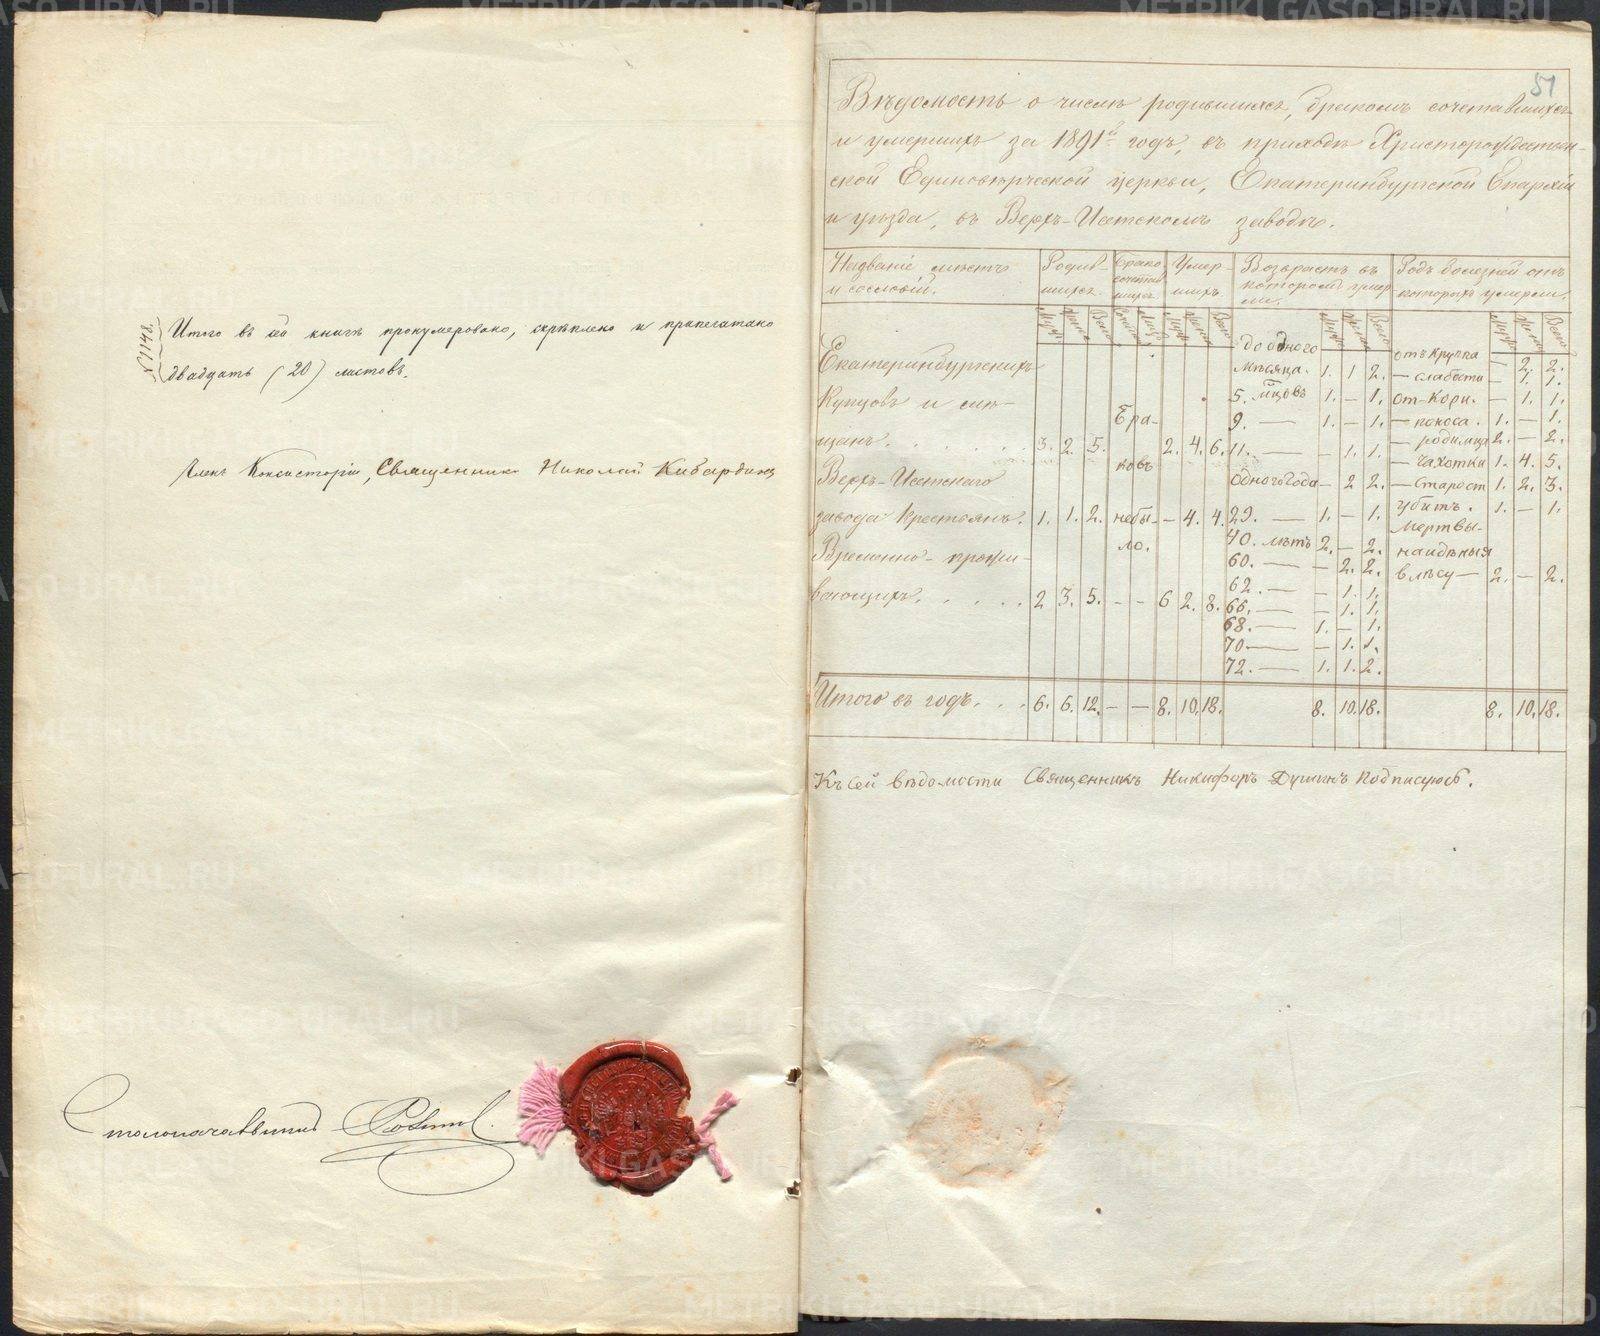 № 1148.
Итого въ сей книгѣ пронумеровано, скрѣплено и припечатано
двадцать (20) листовъ.
Членъ Консисторіи, Священникъ Николай Кибардинъ
Столоначальникъ
51
Вѣдомость о числѣ родившихся, бракомъ сочетавшихся
и умершихъ за 1891й годъ, въ приходѣ Христорождествен-
ской Единовѣрческой церкви, Екатеринбургской Епархіи
и уѣзда, въ Верхъ-Исетскомъ заводѣ.
Названіе мѣстъ
и сословій.
Родив-
шихся.
Брако
сочетав
шихся.
Умер-
шихъ.
Возрастъ въ
которомъ умер
ли.
Родъ болезней отъ
которыхъ умерли.
Муж. Жен. Всего
Муж. Жен. Всего
Муж. Жен. Всего
Муж. Жен. Всего
Екатеринбургскихъ
Купцовъ и мѣ-
щанъ. . . . . . . 3. 2. 5. 2. 4. 6.
Верхъ-Исетскаго
завода крестьянъ. 1. 1. 2. — 4. 4.
Временно-прожи-
вающихъ. . . . . . 2 3. 5. - - 6 2. 8.
Бра-
ковъ
небы-
ло.
до одного
мѣсяца. 1. 1 2.
5. м̃цовъ 1. — 1.
9. — 1. — 1.
11. — - 1. 1.
Одного года — 2 2.
29. — 1. — 1.
40. лѣтъ 2. — 2.
60. — — 2. 2.
62. — — 1. 1.
66. — — 1. 1.
68. — 1. — 1.
70 — — 1. 1.
72. — 1. 1. 2.
отъ Крупа — 2. 2.
— слабости — 1. 1.
от-Кори. — 1. 1.
— поноса. 1. — 1.
— родимца 2. — 2.
— Чахотки 1. 4. 5.
— Старост 1. 2. 3.
Убитъ. 1. — 1.
Мертвы-
наидѣныя
влѣсу — 2. — 2.
Итого въ годъ. . . 6. 6. 12. — — 8. 10. 18. 8. 10. 18. 8. 10. 18.
Къ сей вѣдомости Священникъ Никифоръ Душинъ Подписуюсь.
METRIKI.GASO-URAL.RU